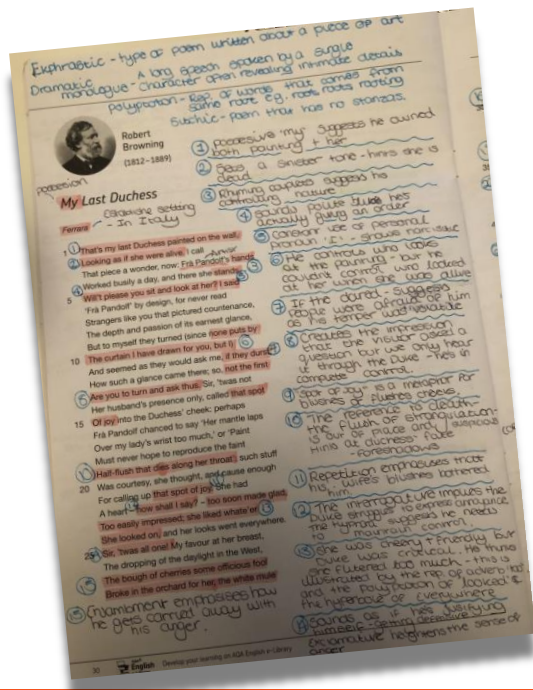 Ekphrastic - type of poem written about a piece of art
Dramatic monologue - A long speech spoken by a single character often revealing intimate details
polyptoton - Rep. of words that comes from same root e.g. roots rooting
Stichic - poem that has no stanzas.
Robert
Browning
(1812–1889)
possession
My Last Duchess
setting
- In Italy
Ferrara
1 That's my last Duchess painted on the wall,
Looking as if she were alive. I call
That piece a wonder, now: Frà Pandolf's hands
Worked busily a day, and there she stands.
5 Will't please you sit and look at her? I said
'Frà Pandolf' by design, for never read
Strangers like you that pictured countenance,
The depth and passion of its earnest glance,
But to myself they turned (since none puts by
10 The curtain I have drawn for you, but I)
And seemed as they would ask me, if they durst,
How such a glance came there; so, not the first
Are you to turn and ask thus. Sir, 'twas not
Her husband's presence only, called that spot
15 Of joy into the Duchess' cheek: perhaps
Frà Pandolf chanced to say 'Her mantle laps
Over my lady's wrist too much,' or 'Paint
Must never hope to reproduce the faint
Half-flush that dies along her throat'; such stuff
20 Was courtesy, she thought, and cause enough
For calling up that spot of joy. She had
A heart – how shall I say? – too soon made glad,
Too easily impressed; she liked whate'er
She looked on, and her looks went everywhere.
25 Sir, 'twas all one! My favour at her breast,
The dropping of the daylight in the West,
The bough of cherries some officious fool
Broke in the orchard for her, the white mule
15 Enjambment emphasises how
he gets carried away with
his anger.
1 possessive 'my' suggests he owned
both painting + her
2 Sets a sinister tone - hints she is
dead
3 Rhyming couplets suggest his
controlling nature
4 sounds polite but he's
actually giving an order
5 constant use of personal
pronoun 'I' - shows narcissist
6 He controls who looks
at the painting - but he
couldn't control who looked
at her when she was alive
7 If they dared - suggests
people were afraid of him
as his temper was volatile
8 Creates the impression
that the visitor asked a
question but we only hear
it through the Duke - he's in
complete control.
9 'spot of joy' is a metaphor for
blushes or flushed cheeks.
10 The reference to death
the flush of strangulation-
is out of place and suspicious
Hints at duchess' fate
- foreshadows
11 Repetition emphasises that
his wife's blushes bothered
him.
12 The interrogative implies the
Duke struggles to express annoyance
The hyphens suggest he needs
to maintain control.
13 She was cheery + friendly but
Duke was critical. He thinks
she flirted too much - this is
illustrated by the rep of adverb 'too'
and the polyptoton of 'looked' &
the hyperbole of 'everywhere'
14 Sounds as if he's justifying
himself - getting defensive
exclamative heightens the sense of
anger
30
English
Develop your learning on AQA English e-Library